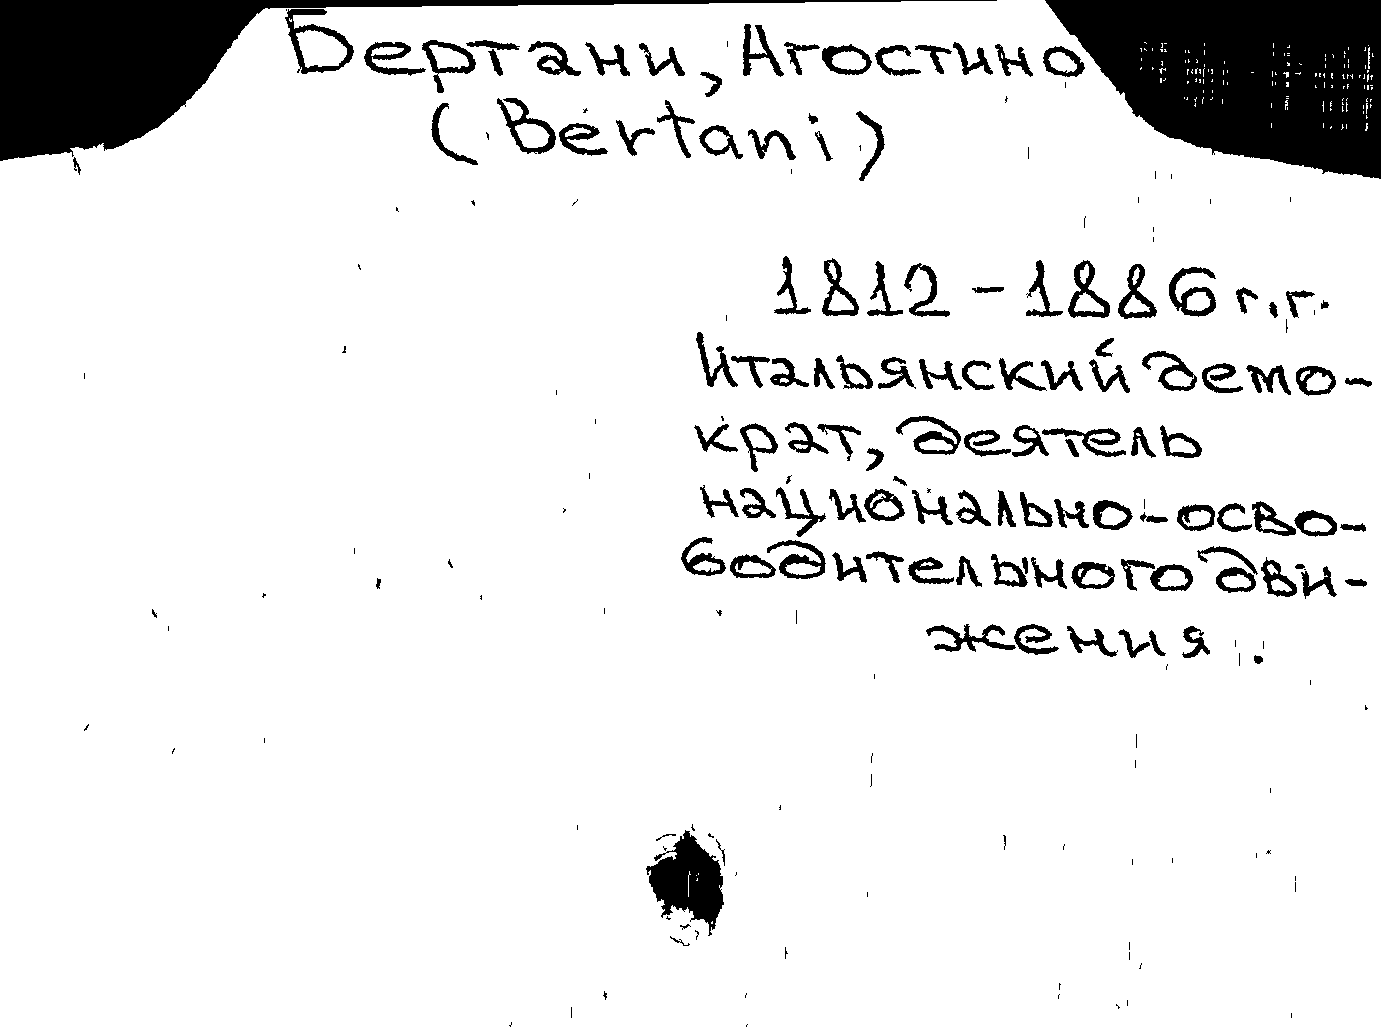 Бертани, Агостино
(Bertani)
1812 - 1886 г.г.
Итальянский демо-
крат, деятель
национально-осво-
бодительного дви-
жения.